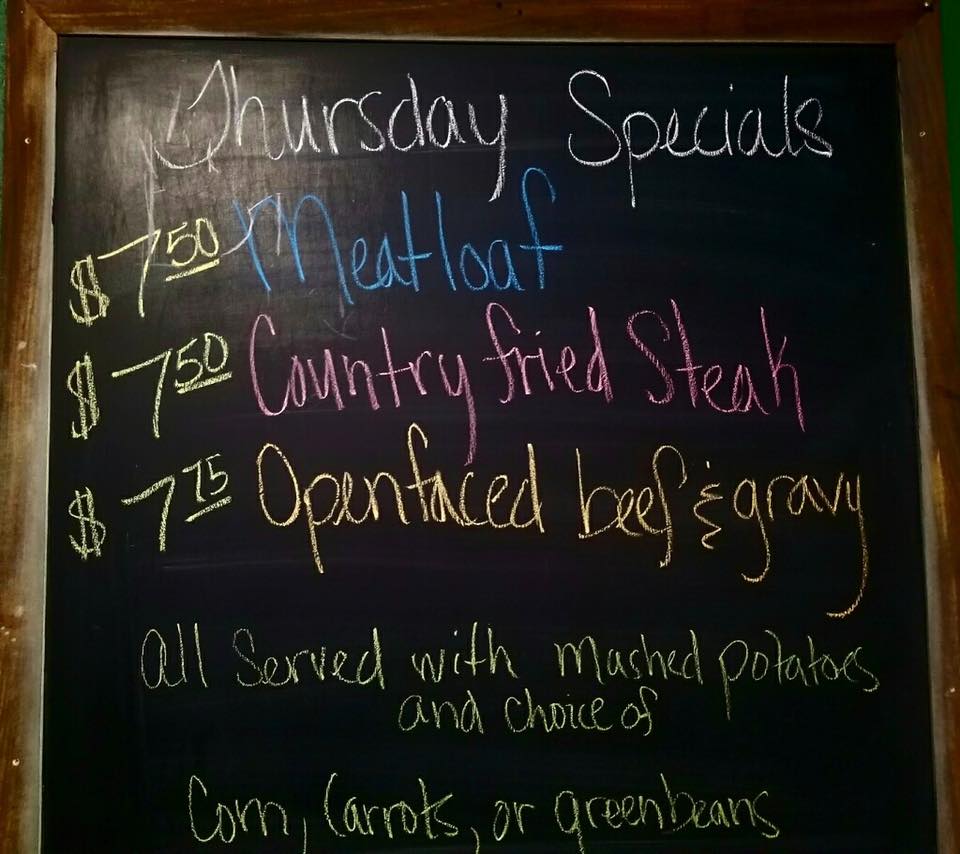 Thursday Specials
$7.50 Meatloaf
$7.50 Country fried Steak
$7.75 Openfaced beef & gravy
All Served with mashed potatoes
and choice of
Corn, Carrots, or greenbeans